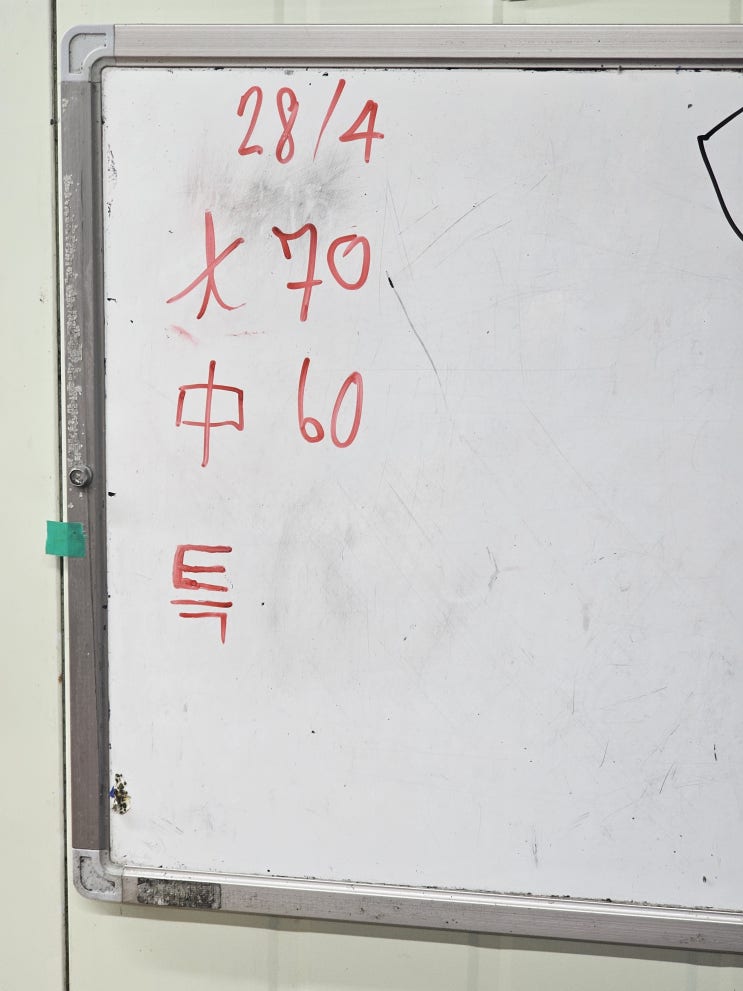 28/4
大 70
中 60
특